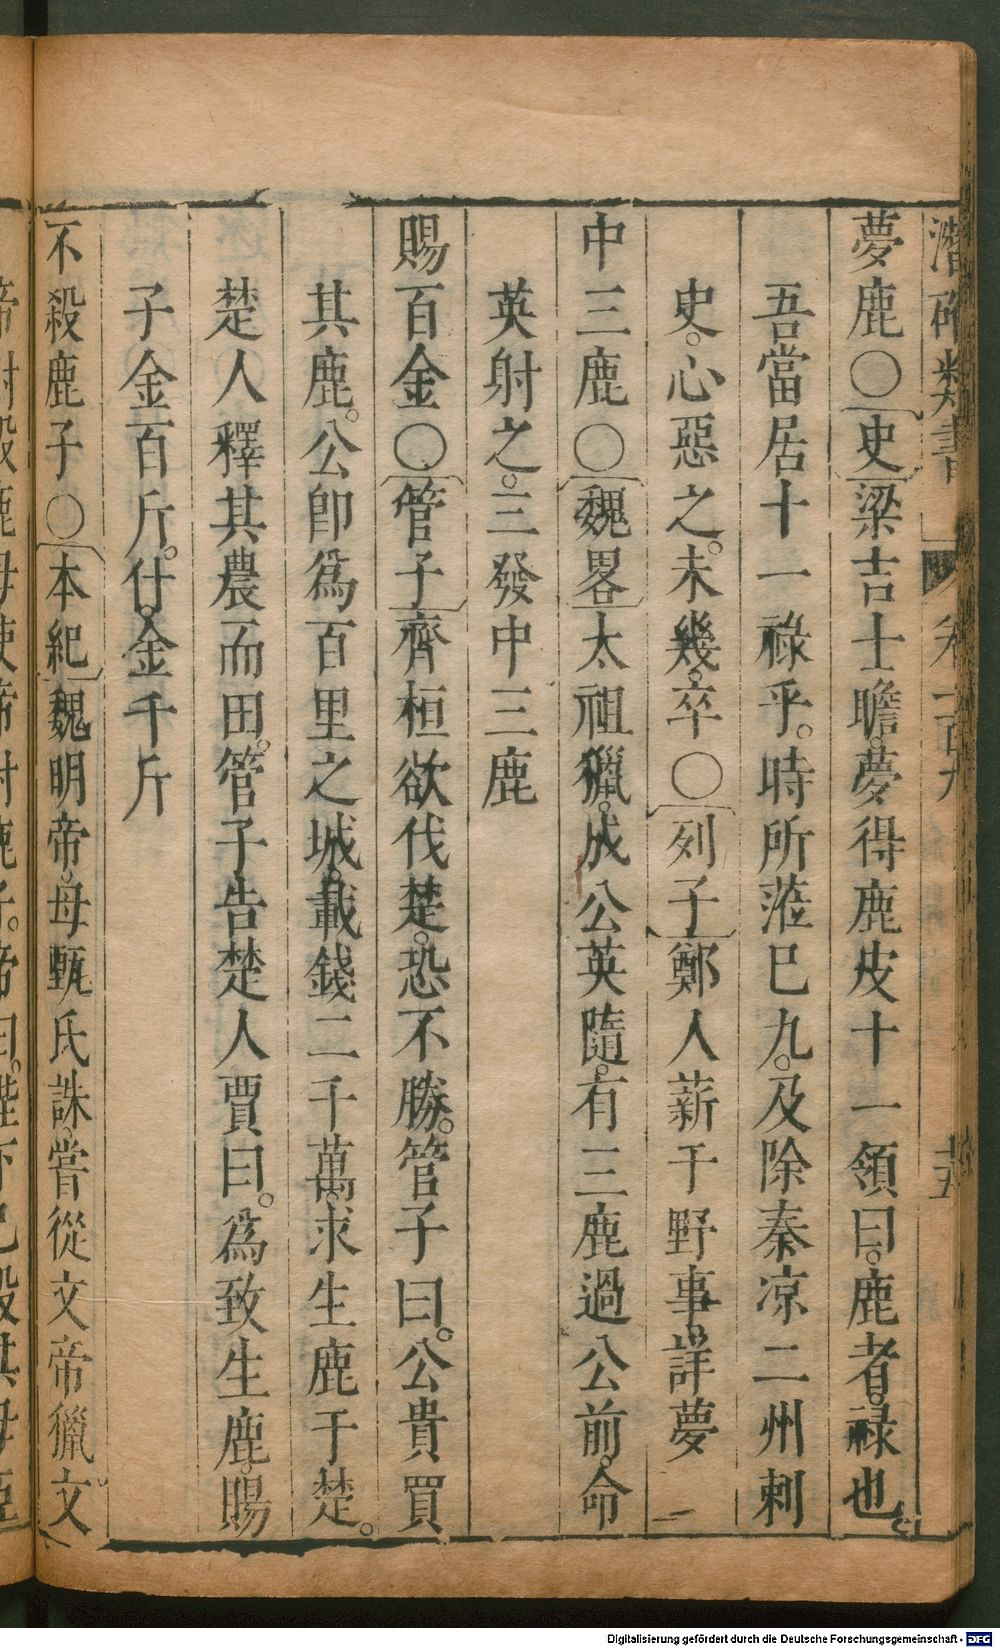 潛確類書 卷一百九 十五
夢鹿○史梁吉士瞻。夢得鹿皮十一領曰。鹿者。祿也
吾當居十一祿乎。時所蒞巳九。及除秦凉二州刺
史。心惡之。未幾。卒○列子鄭人薪于野事。詳夢
中三鹿○魏畧太祖獵。成公英隨。有三鹿過公前。命
英射之。三發中三鹿
賜百金○管子齊桓欲伐楚。恐不勝。管子曰。公貴買
其鹿。公卽爲百里之城。載錢二千萬。求生鹿于楚。
楚人釋其農而田。管子告楚人賈曰。爲致生鹿。賜
子金百斤。什。金千斤
不殺鹿子○本紀魏明帝。母甄氏誅。嘗從文帝獵文
帝射殺鹿母使帝射鹿子。帝曰。陛下已殺其母臣
Digitalisierung gefördert durch die Deutsche Forschungsgemeinschaft - DFG